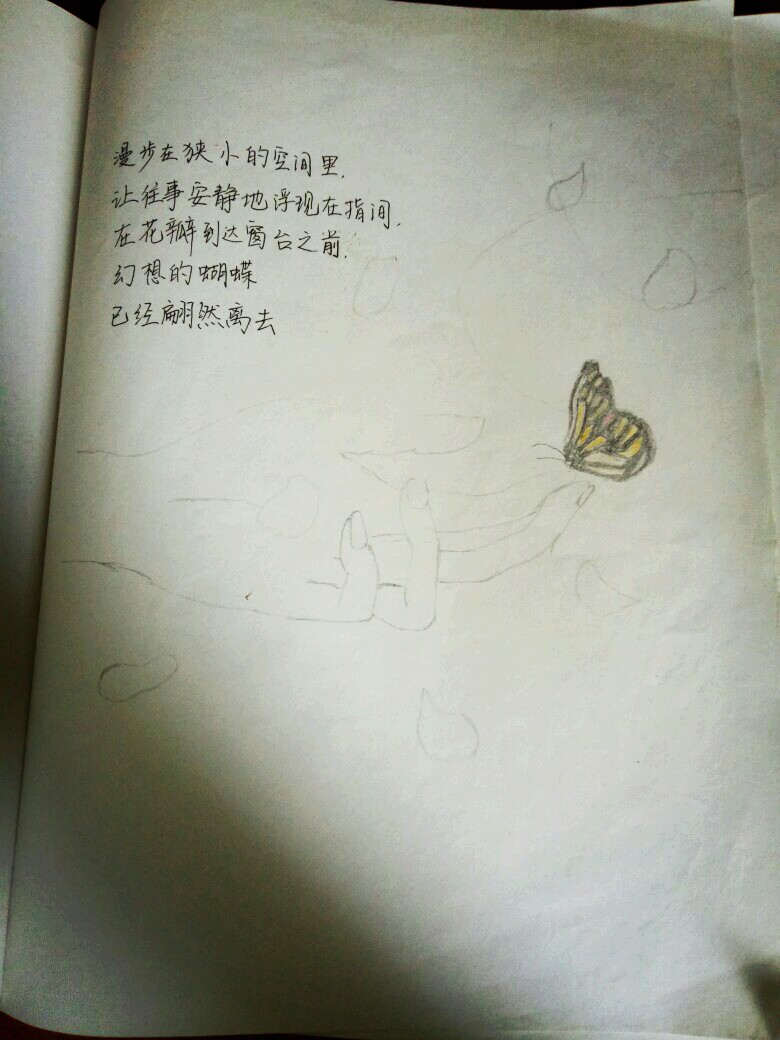 漫步在狭小的空间里.
让往事安静地浮现在指间.
在花瓣到达窗台之前.
幻想的蝴蝶
已经翩然离去